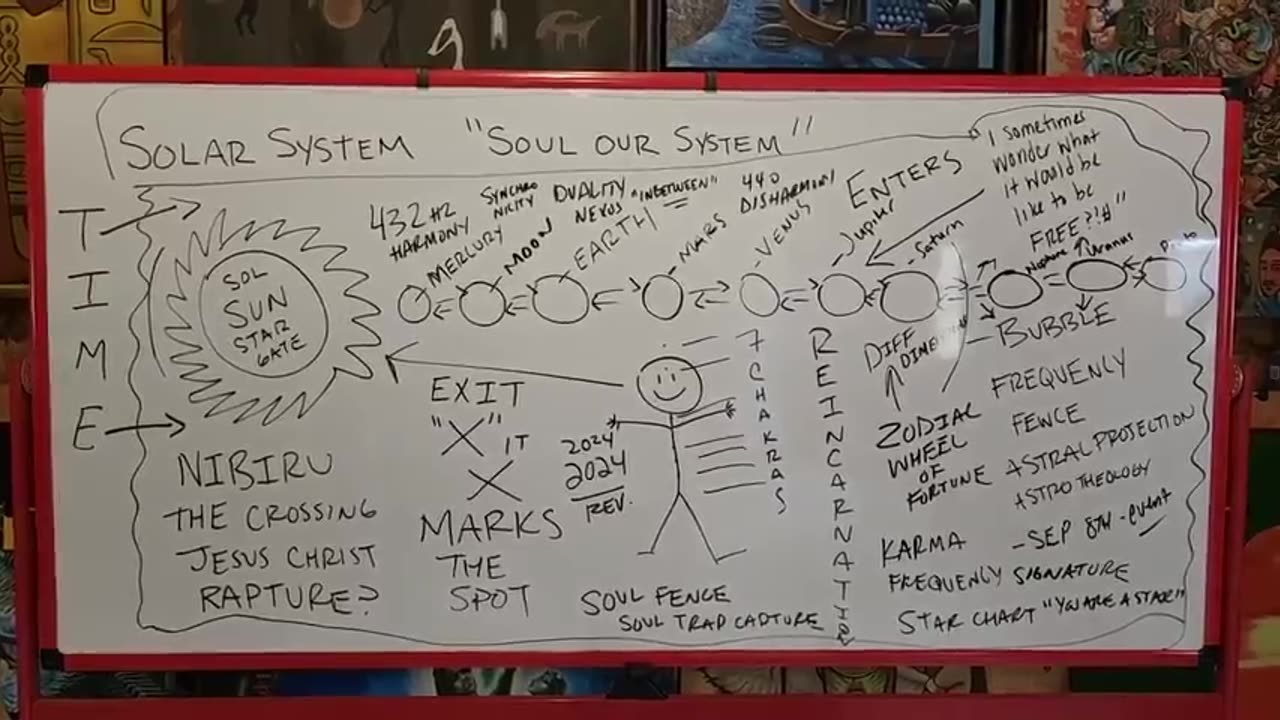 SOLAR SYSTEM "SOUL OUR SYSTEM"
I sometimes
wonder what
it would be
like to be
FREE?!#"
TIME
SOL
SUN
STAR
GATE
432 HZ
HARMONY
SYNCHRO
NICITY
DUALITY
NEXUS
"INBETWEEN"
440
DISHARMONY
ENTERS
MERCURY
MOON
EARTH
MARS
VENUS
Jupiter
Saturn
Neptune
Uranus
EXIT
"X" IT
X
MARKS
THE
SPOT
2024
2024
REV.
7
CHAKRAS
REINCARNATION
DIFF
DIMENSIONS
BUBBLE
FREQUENCY
FENCE
ASTRAL PROJECTION
ASTRO THEOLOGY
ZODIAC
WHEEL
OF
FORTUNE
NIBIRU
THE CROSSING
JESUS CHRIST
RAPTURE?
SOUL FENCE
SOUL TRAP CAPTURE
KARMA
- SEP 8TH - event
FREQUENCY SIGNATURE
STAR CHART "YOU ARE A STAR"